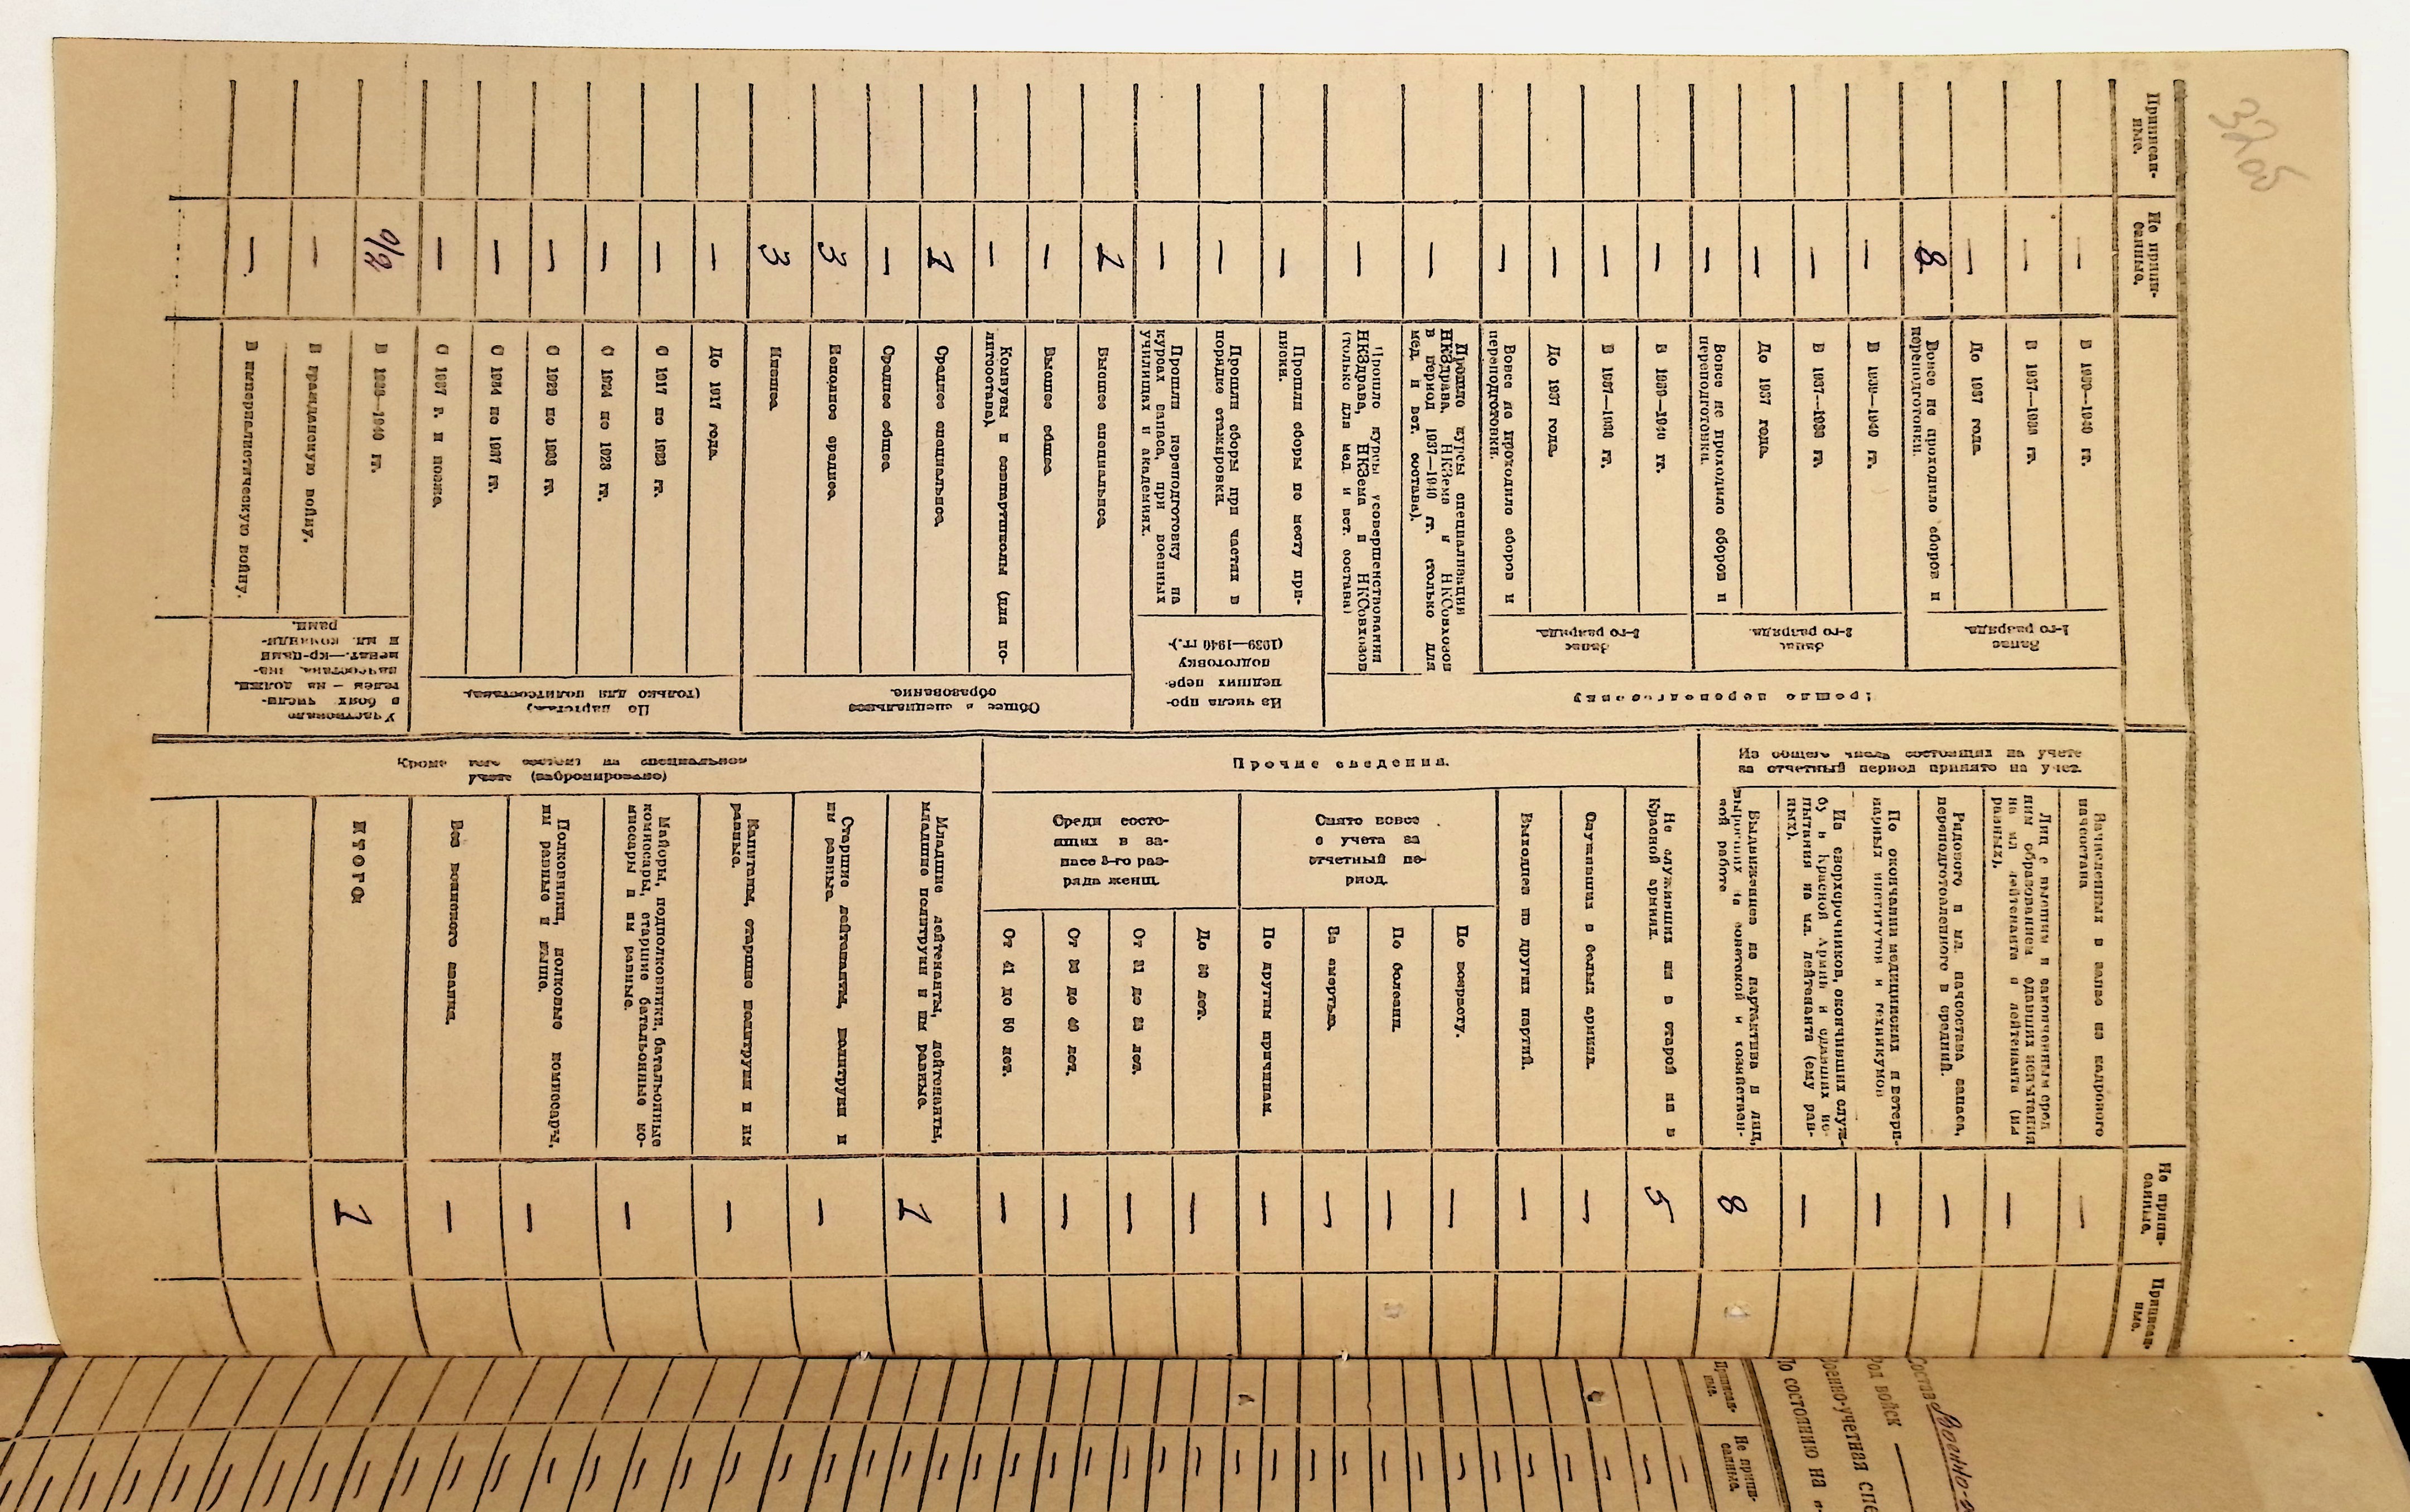 Приписан-
ные.
Не припи-
санные.
Прошло переподготовку
Запас
1-го разряда.
В 1939—1940 гг. —
В 1937—1938 гг. —
До 1937 года —
Вовсе не проходило сборов и
переподготовки. 8
Запас
2-го разряда.
В 1939—1940 гг. —
В 1937—1938 гг. —
До 1937 года. —
Вовсе не проходило сборов и
переподготовки. —
Запас
3-го разряда.
В 1939—1940 гг. —
В 1937—1938 гг. —
До 1937 года. —
Вовсе не проходило сборов и
переподготовки. —
Прошло курсы специализации
НКЗдрава, НКЗема и НКСовхозов
в период 1937—1940 гг. (только для
мед. и вет. состава). —
Прошло курсы усовершенствования
НКЗдрава, НКЗема и НКСовхозов
(только для мед. и вет. состава) —
Из числа про-
шедших пере-
подготовку
(1939—1940 гг.).
Прошли сборы по месту при-
писки. —
Прошли сборы при частях в
порядке стажировки. —
Прошли переподготовку на
курсах запаса, при военных
училищах и академиях. —
Общее и специальное
образование.
Высшее специальное. 1
Высшее общее. —
Комвузы и совпартшколы (для по-
литсостава). —
Среднее специальное. 1
Среднее общее. —
Неполное среднее. 3
Низшее. 3
По партстажу
(только для политсостава).
До 1917 года. —
С 1917 по 1923 гг. —
С 1924 по 1928 гг. —
С 1929 по 1933 гг. —
С 1934 по 1937 гг. —
С 1937 г. и позже. —
Участвовало
в боях числи-
телем — на должн.
начсостава, зна-
менат.—кр-цами
и мл. команди-
рами.
В 1938—1940 гг. 0/2
В гражданскую войну. —
В империалистическую войну. —
Не припи-
санные.
Приписан-
ные.
Из общего числа состоящих на учете
за отчетный период принято на учет.
Зачисленных в запас из кадрового
начсостава —
Лиц с высшим и законченным сред-
ним образованием сдавших испытания
на мл. лейтенанта и лейтенанта (им
равных). —
Рядового и мл. начсостава запаса,
переподготовленного в средний. —
По окончании медицинских и ветери-
нарных институтов и техникумов —
Из сверхсрочников, окончивших служ-
бу в Красной Армии и сдавших ис-
пытания на мл. лейтенанта (ему рав-
ных). —
Выдвиженцев из партактива и лиц,
выросших на советской и хозяйствен-
ной работе 8
Прочие сведения.
Не служивших ни в старой ни в
Красной армиях. 5
Служивших в белых армиях. —
Выходцев из других партий. —
Снято вовсе
с учета за
отчетный пе-
риод.
По возрасту. —
По болезни. —
За смертью. —
По другим причинам. —
Среди состо-
ящих в за-
пасе 3-го раз-
ряда женщ.
До 30 лет. —
От 31 до 35 лет. —
От 36 до 40 лет. —
От 41 до 50 лет. —
Кроме того состоит на специальном
учете (забронировано)
Младшие лейтенанты, лейтенанты,
младшие политруки и им равные. 1
Старшие лейтенанты, политруки и
им равные. —
Капитаны, старшие политруки и им
равные. —
Майоры, подполковники, батальонные
комиссары, старшие батальонные ко-
миссары и им равные. —
Полковники, полковые комиссары,
им равные и выше. —
Без воинского звания. —
ИТОГО 1
Состав
Род войск —
Военно-учетная спе
По состоянию на
Приписан-
ные.
Не припи-
санные.